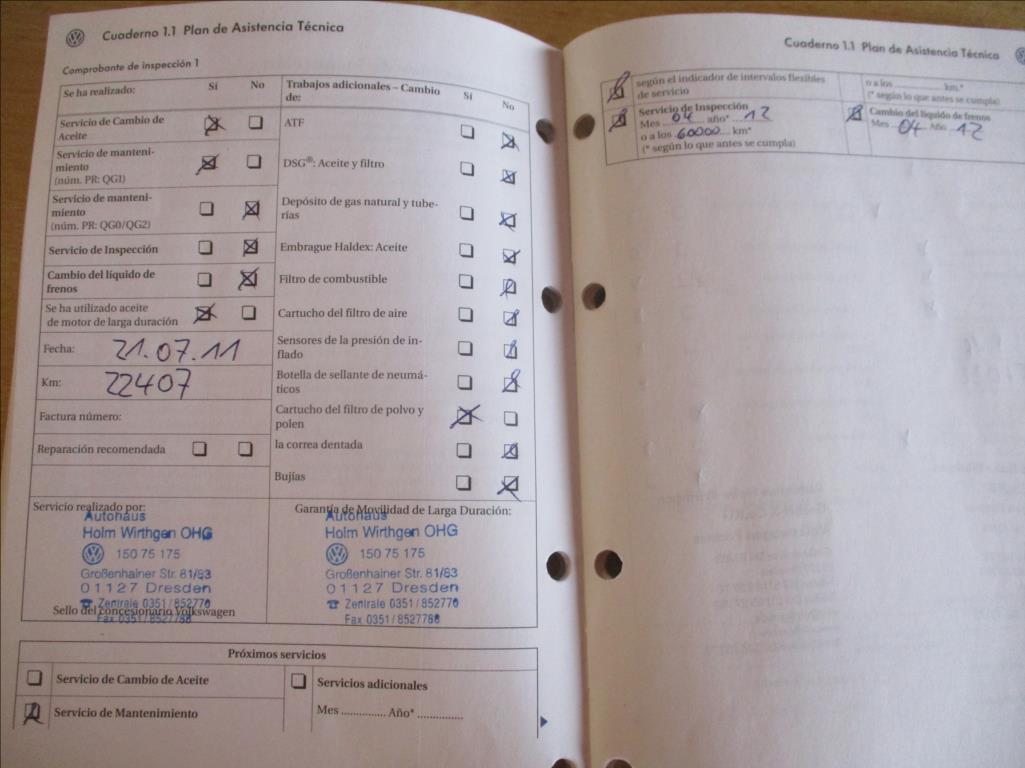 Cuaderno 1.1 Plan de Asistencia Técnica
Comprobante de inspección 1
Se ha realizado: Sí No
Servicio de Cambio de
Aceite
Servicio de manteni-
miento
(núm. PR: QG1)
Servicio de manteni-
miento
(núm. PR: QG0/QG2)
Servicio de Inspección
Cambio del líquido de
frenos
Se ha utilizado aceite
de motor de larga duración
Fecha: 21.07.11
Km: 22407
Factura número:
Reparación recomendada
Trabajos adicionales – Cambio
de: Sí No
ATF
DSG®: Aceite y filtro
Depósito de gas natural y tube-
rías
Embrague Haldex: Aceite
Filtro de combustible
Cartucho del filtro de aire
Sensores de la presión de in-
flado
Botella de sellante de neumá-
ticos
Cartucho del filtro de polvo y
polen
la correa dentada
Bujías
Servicio realizado por:
Autohaus
Holm Wirthgen OHG
150 75 175
Großenhainer Str. 81/83
01127 Dresden
Zentrale 0351/852770
Fax 0351/8527788
Sello del concesionario Volkswagen
Garantía de Movilidad de Larga Duración:
Autohaus
Holm Wirthgen OHG
150 75 175
Großenhainer Str. 81/83
01127 Dresden
Zentrale 0351/852770
Fax 0351/8527788
Próximos servicios
Servicio de Cambio de Aceite
Servicio de Mantenimiento
Servicios adicionales
Mes .............. Año* ..............
Cuaderno 1.1 Plan de Asistencia Técnica
según el indicador de intervalos flexibles
de servicio
o a los .................... km*
(* según lo que antes se cumpla)
Servicio de Inspección
Mes 04 año* 12
o a los 60000 km*
(* según lo que antes se cumpla)
Cambio del líquido de frenos
Mes 04 Año 12